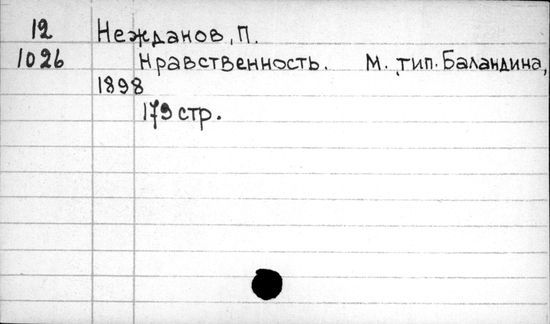 12 Нежданов, П.
1026 Нравственность. М. тип. Баландина,
1898
179 стр.